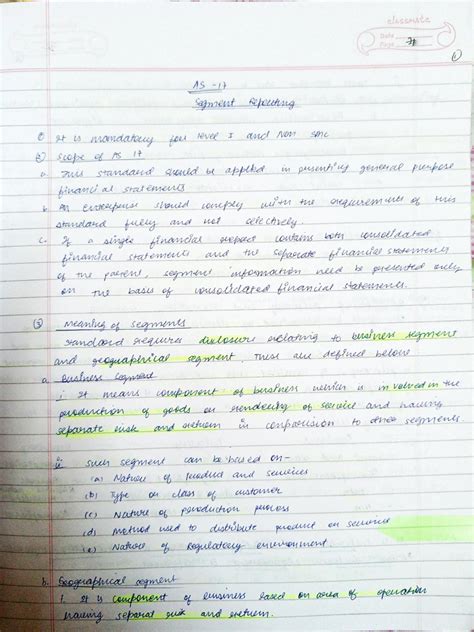 classmate
Date
Page 71
①
AS-17
Segment Reporting
① It is mandatory for level I and Non SMC
② Scope of AS 17
a. This standard should be applied in presenting general purpose
financial statements
b. An enterprise should comply with the requirements of this
standard fully and not selectively.
c. If a single financial report contains both consolidated
financial statements and the separate financial statements
of the parent, segment information need be presented only
on the basis of consolidated financial statements.
③ Meaning of segments
Standard requires disclosure relating to business segment
and geographical segment, These are defined below
a. Business Segment
i. It means component of business which is involved in the
production of goods or rendering of service and having
separate risk and return in comparision to other segments
ii. such segment can be based on-
(a) Nature of Product and services
(b) Type or class of customer
(c) Nature of production process
(d) Method used to distribute product or service
(e) Nature of Regulatory environment.
b. Geographical segment
i. it is component of business based on area of operation
having separate risk and return.